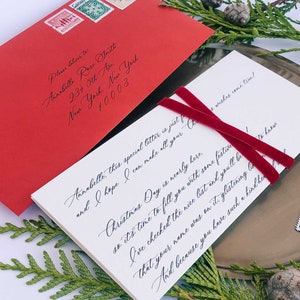 Annabelle Rose Smith
234 5th Ave
New York, New York
10003
Annabelle, this special letter is just
and I hope I can make all your wishes come true!
Christmas Day is nearly here,
so it's time to fill you with some festive
I've checked the nice list and you'll be to know
that your name was on it, glistening
And because you have such a kind